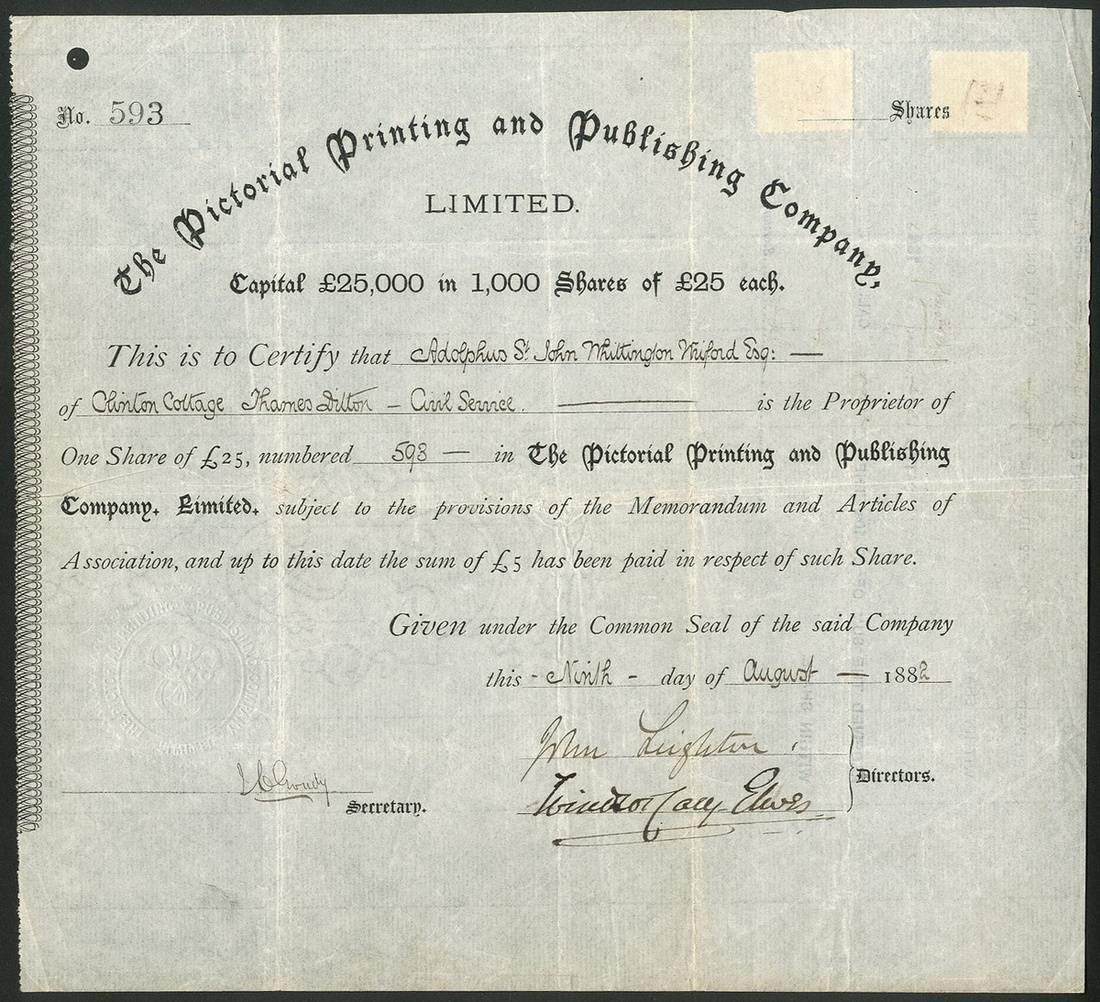 No. 593 Shares
The Pictorial Printing and Publishing Company,
LIMITED.
Capital £25,000 in 1,000 Shares of £25 each.
This is to Certify that Adolphus St. John Whittington Wriford Esq: —
of Clinton Cottage Thames Ditton — Civil Service. — is the Proprietor of
One Share of £25, numbered 593 — in The Pictorial Printing and Publishing
Company, Limited, subject to the provisions of the Memorandum and Articles of
Association, and up to this date the sum of £5 has been paid in respect of such Share.
Given under the Common Seal of the said Company
this - Ninth - day of August — 1882
John Leighton.
Directors.
Secretary.